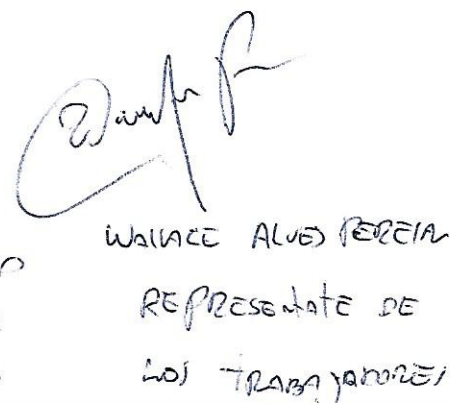 WALLACE ALVES PEREIRA
REPRESENTATE DE
LOS TRABAJADORES